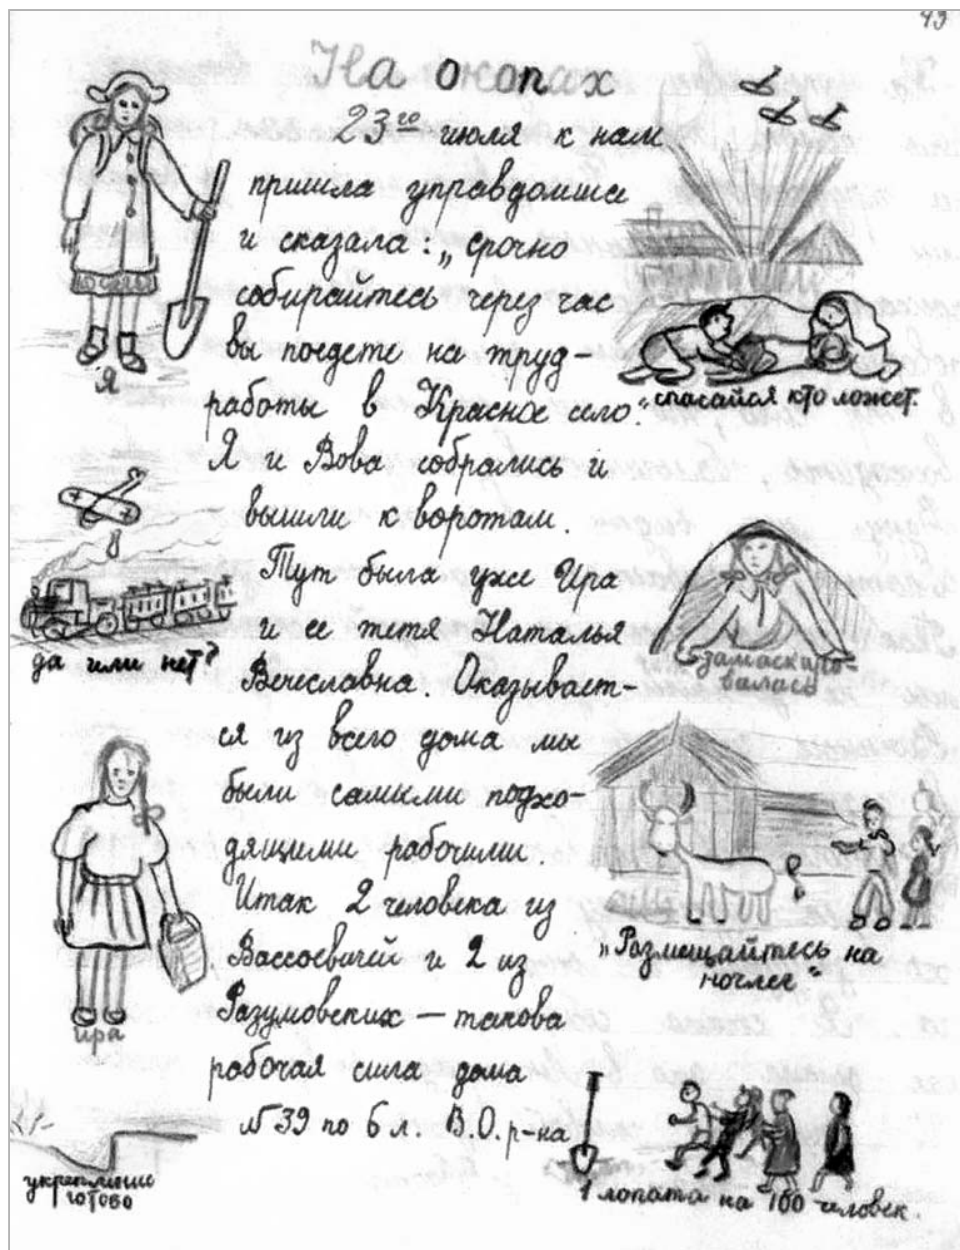 43
На окопах
23го июля к нам
пришла управдомша
и сказала: „срочно
собирайтесь через час
вы поедете на труд-
работы в Красное село."
Я и Вова собрались и
вышли к воротам.
Тут была уже Ира
и ее тетя Наталья
Вечеславна. Оказывает-
ся из всего дома мы
были самыми подхо-
дящими рабочими.
Итак 2 человека из
Вассоевичей и 2 из
Разумовских — такова
рабочая сила дома
№ 39 по 6 л. В.О. р-на
Я
да или нет?
ира
укрепление
готово
спасайся кто может
замаскиро-
валась
„Размещайтесь на
ночлег"
1 лопата на 100 человек.